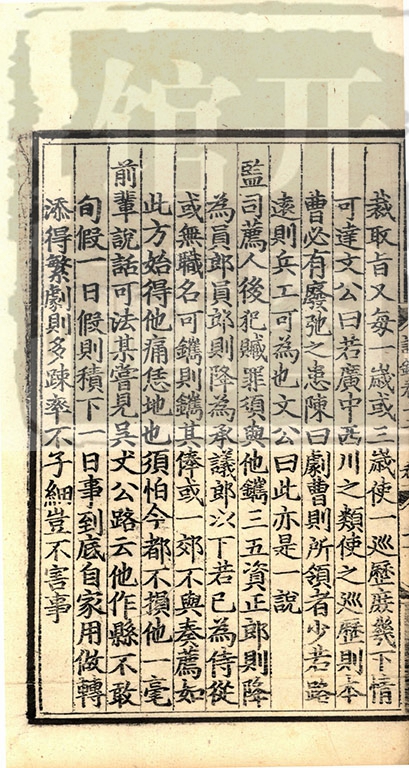 裁取旨又每一歲或三歲使一巡歷庶幾下情
可達文公曰若廣中西川之類使之巡歷則本
曹必有廢弛之患陳曰劇曹則所領者少若路
遠則兵工可為也文公曰此亦是一說
監司薦人後犯贓罪須與他鐫三五資正郎則降
為員郎員郎則降為承議郎以下若已為侍從
或無職名可鐫則鐫其俸或一郊不與奏薦如
此方始得他痛恁地也須怕今都不損他一毫
前輩說話可法某嘗見吳丈公路云他作縣不敢
旬假一日假則積下一日事到底自家用做轉
添得繁劇則多踈率不子細豈不害事